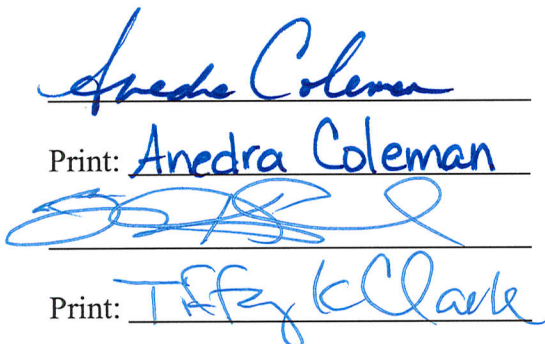 Anedra Coleman
Print: Anedra Coleman
Print: Tiffany K Clark